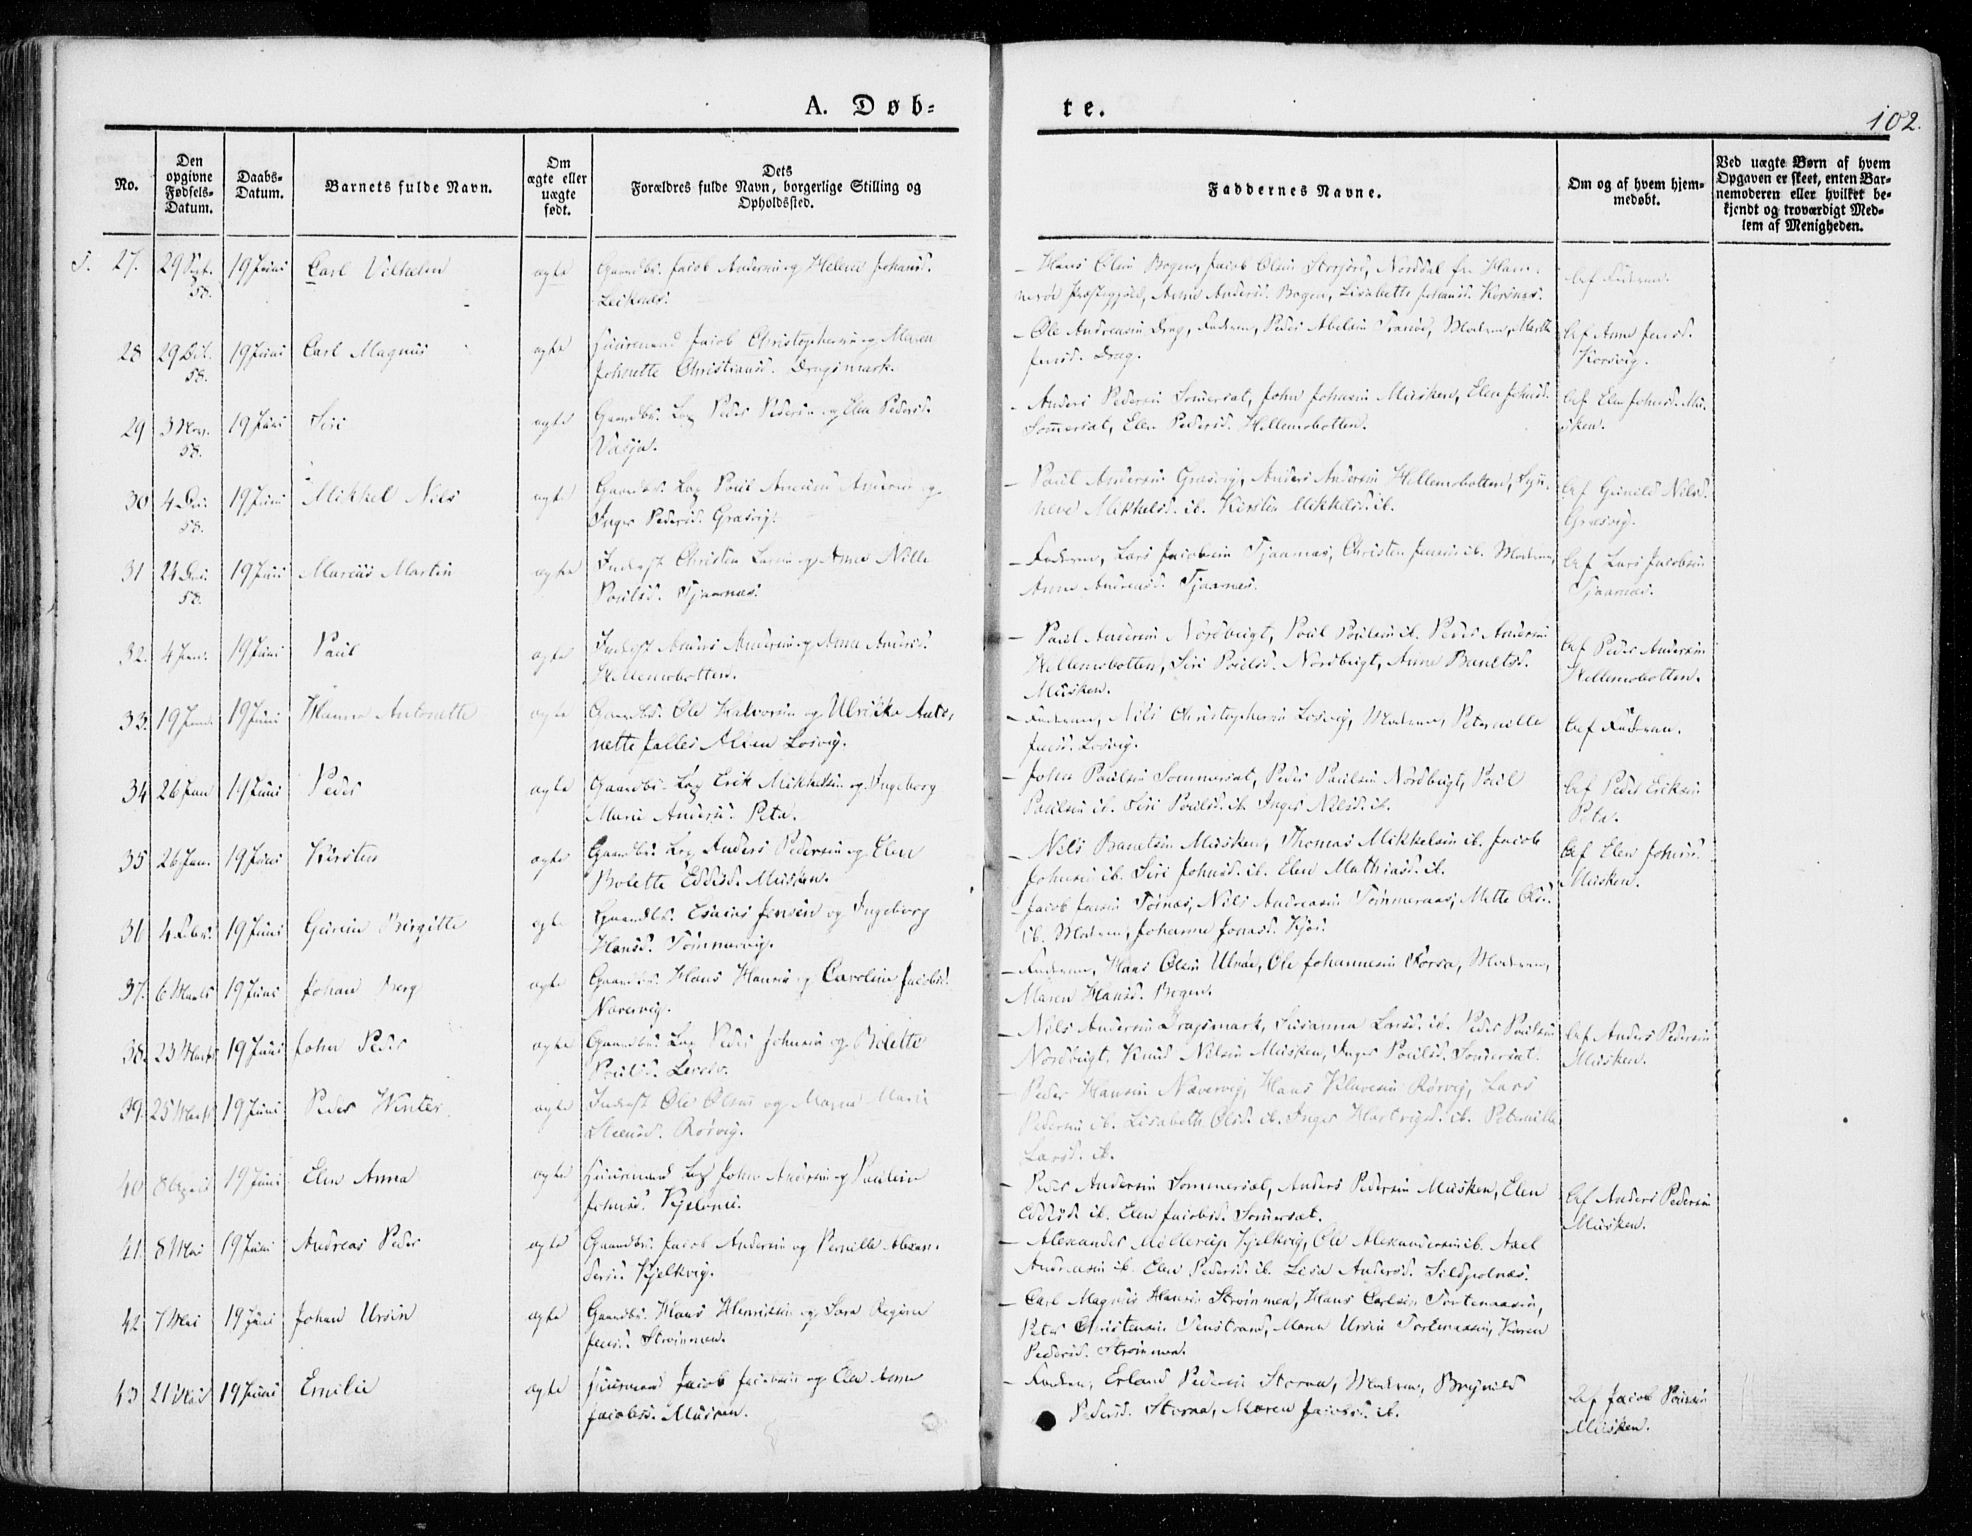 A. Døb-
te.
102.
No.
Den opgivne Fødsels-Datum.
Daabs-Datum.
Barnets fulde Navn.
Om ægte eller uægte født.
Dets Forældres fulde Navn, borgerlige Stilling og Opholdssted.
Faddernes Navne.
Om og af hvem hjem-medøbt.
Ved uægte Børn af hvem Opgaven er skeet, enten Bar-nemoderen eller hvilket be-kjendt og troværdigt Med-lem af Menigheden.
27. 29 Sept. 58. 19 Juni Carl Vilhelm ægte Gaardbr. Jacob Andersen og Helene Johansd.
Leiknes.
Hans Olsen Bogen, Jacob Olsen Storjord, Norddal fra Ham-
merø Præstegjeld, Anne Andersd. Bogen, Lisabeth Johansd. Korsnes.
28 29 Oct. 58. 19 Juni Carl Magnus ægte Huusmand Jacob Christophersen og Maren
Johnette Christiansd. Dragsmark.
Ole Andreasen Drag, Faderen, Peder Abelsen Tranød, Moderen, Marthe
Jensd. Drag.
Af Anne Jensd.
Korsvig.
29 3 Nov. 58. 19 Juni Siri ægte Gaardbr. Lap Peder Pedersen og Elen Pedersd.
Vasja.
Anders Pedersen Sommersæt, John Johnsen Musken, Elen Johnsd.
Sommersæt, Elen Pedersd. Hellemobotten.
Af Elen Johnsd. Mu-
sken.
30 4 Dec. 58. 19 Juni Mikkel Nils ægte Gaardbr. Lap Poul Andersen og
Inger Pedersd. Græsvig.
Paul Andersen Græsvig, Anders Andersen Hellemobotten, Syn-
neve Mikkelsd. ib. Kirsten Mikkelsd. ib.
Af Gunild Nilsd.
Græsvig.
31 24 Dec. 58. 19 Juni Marcus Martin ægte Inderst Christen Larsen og Anne Nille
Poulsd. Tjaarnæs.
Faderen, Lars Jacobsen Tjaarnæs, Christen Jensen ib. Moderen,
Anne Andreasd. Tjaarnæs.
Af Lars Jacobsen
Tjaarnæs.
32. 4 Jan. 19 Juni Paul ægte Inderst Anders Andersen og Anne Andersd.
Hellemobotten.
Paul Andersen Nordbugt, Poul Poulsen ib. Peder Andersen
Hellemobotten, Siri Poulsd. Nordbugt, Anne Banetsd.
Musken.
Af Peder Andersen
Hellemobotten.
33. 19 Jan. 19 Juni Hanna Antonette ægte Gaardbr. Ole Halvorsen og Ulrikke Anto-
nette Falles Alsen Losvig.
Faderen, Nils Christophersen Losvig, Moderen, Peternille
Jensd. Losvig.
Af Faderen.
34 26 Jan 19 Juni Peder ægte Gaardbr. Lap Erik Mikkelsen og Ingeborg
Marie Andersd. Pita.
John Paulsen Sommersæt, Peder Paulsen Nordbugt, Poul
Paulsen ib. Siri Poulsd. ib. Inger Nilsd. ib.
Af Peder Eriksen
Pita.
35 26 Jan. 19 Juni Kirsten ægte Gaardbr. Lap Anders Pedersen og Elen
Bolette Eddisd. Musken.
Nils Banetsen Musken, Thomas Mikkelsen ib. Jacob
Johnsen ib. Siri Johnsd. ib. Elen Mathiasd. ib.
Af Elen Johnsd.
Musken.
36 4 Febr. 19 Juni Gurin Birgitte ægte Gaardbr. Esaias Jensen og Ingeborg
Hansd. Tømmervig.
Jacob Jensen Tørnæs, Nils Andreasen Tømmeraas, Mette Olsd.
ib. Moderen, Johanne Jonasd. Kjør.
37. 6 Marts 19 Juni Johan Berg ægte Gaardbr. Hans Hansen og Caroline Jacobsd.
Nævervig.
Faderen, Hans Olsen Ulvøe, Ole Johannesen Forsa, Moderen,
Maren Hansd. Bogen.
38. 23 Marts 19 Juni John Peder ægte Gaardbr. Lap Peder Johnsen og Bolette
Poulsd.
Nils Andersen Dragsmark, Susanna Larsd. ib. Peder Poulsen
Nordbugt, Knud Nilsen Musken, Inger Poulsd. Sommersæt.
Af Anders Pedersen
Musken.
39. 25 Marts 19 Juni Peder Winter ægte Inderst Ole Olsen og Magna Marie
Steensd. Rørvig.
Peder Hansen Nævervig, Hans Klavesen Rørvig, Lars
Pedersen ib. Lisabeth Olsd. ib. Inger Hartvigsd. ib. Peternille
Larsd. ib.
40 8 April 19 Juni Elen Anna ægte Huusmand Lap John Andersen og Pauline
Johnsd.
Peder Andersen Sommersæt, Anders Pedersen Musken, Elen
Eddisd. ib. Elen Jacobsd. Sommersæt.
Af Anders Pedersen
Musken.
41. 8 Mai 19 Juni Andreas Peder ægte Gaardbr. Jacob Andersen og Pernille Alexan-
dersd. Kjelkvig.
Alexander Møllerup Kjelkvig, Ole Alexandersen ib. Axel
Andreasen ib. Elen Pedersd. ib. Lisa Andersd. Sildpolnæs.
42 7 Mai 19 Juni Johan Ursin ægte Gaardbr. Hans Henriksen og Sara Regine
Jensd. Strømmen.
Carl Magnus Hansen Strømmen, Hans Carlsen Tortenaasen,
Peter Christensen Tenstrand, Maren Ursin Tortenaasen, Karen
Pedersd. Strømmen.
43 21 Mai 19 Juni Emilie ægte Huusmand Jacob Jacobsen og Elen Anne
Jacobsd. Musken.
Faderen, Erland Pedersen Storaa, Moderen, Brynild
Pedersd. Storaa, Maren Jacobsd. ib.
Af Jacob Poulsen
Musken.